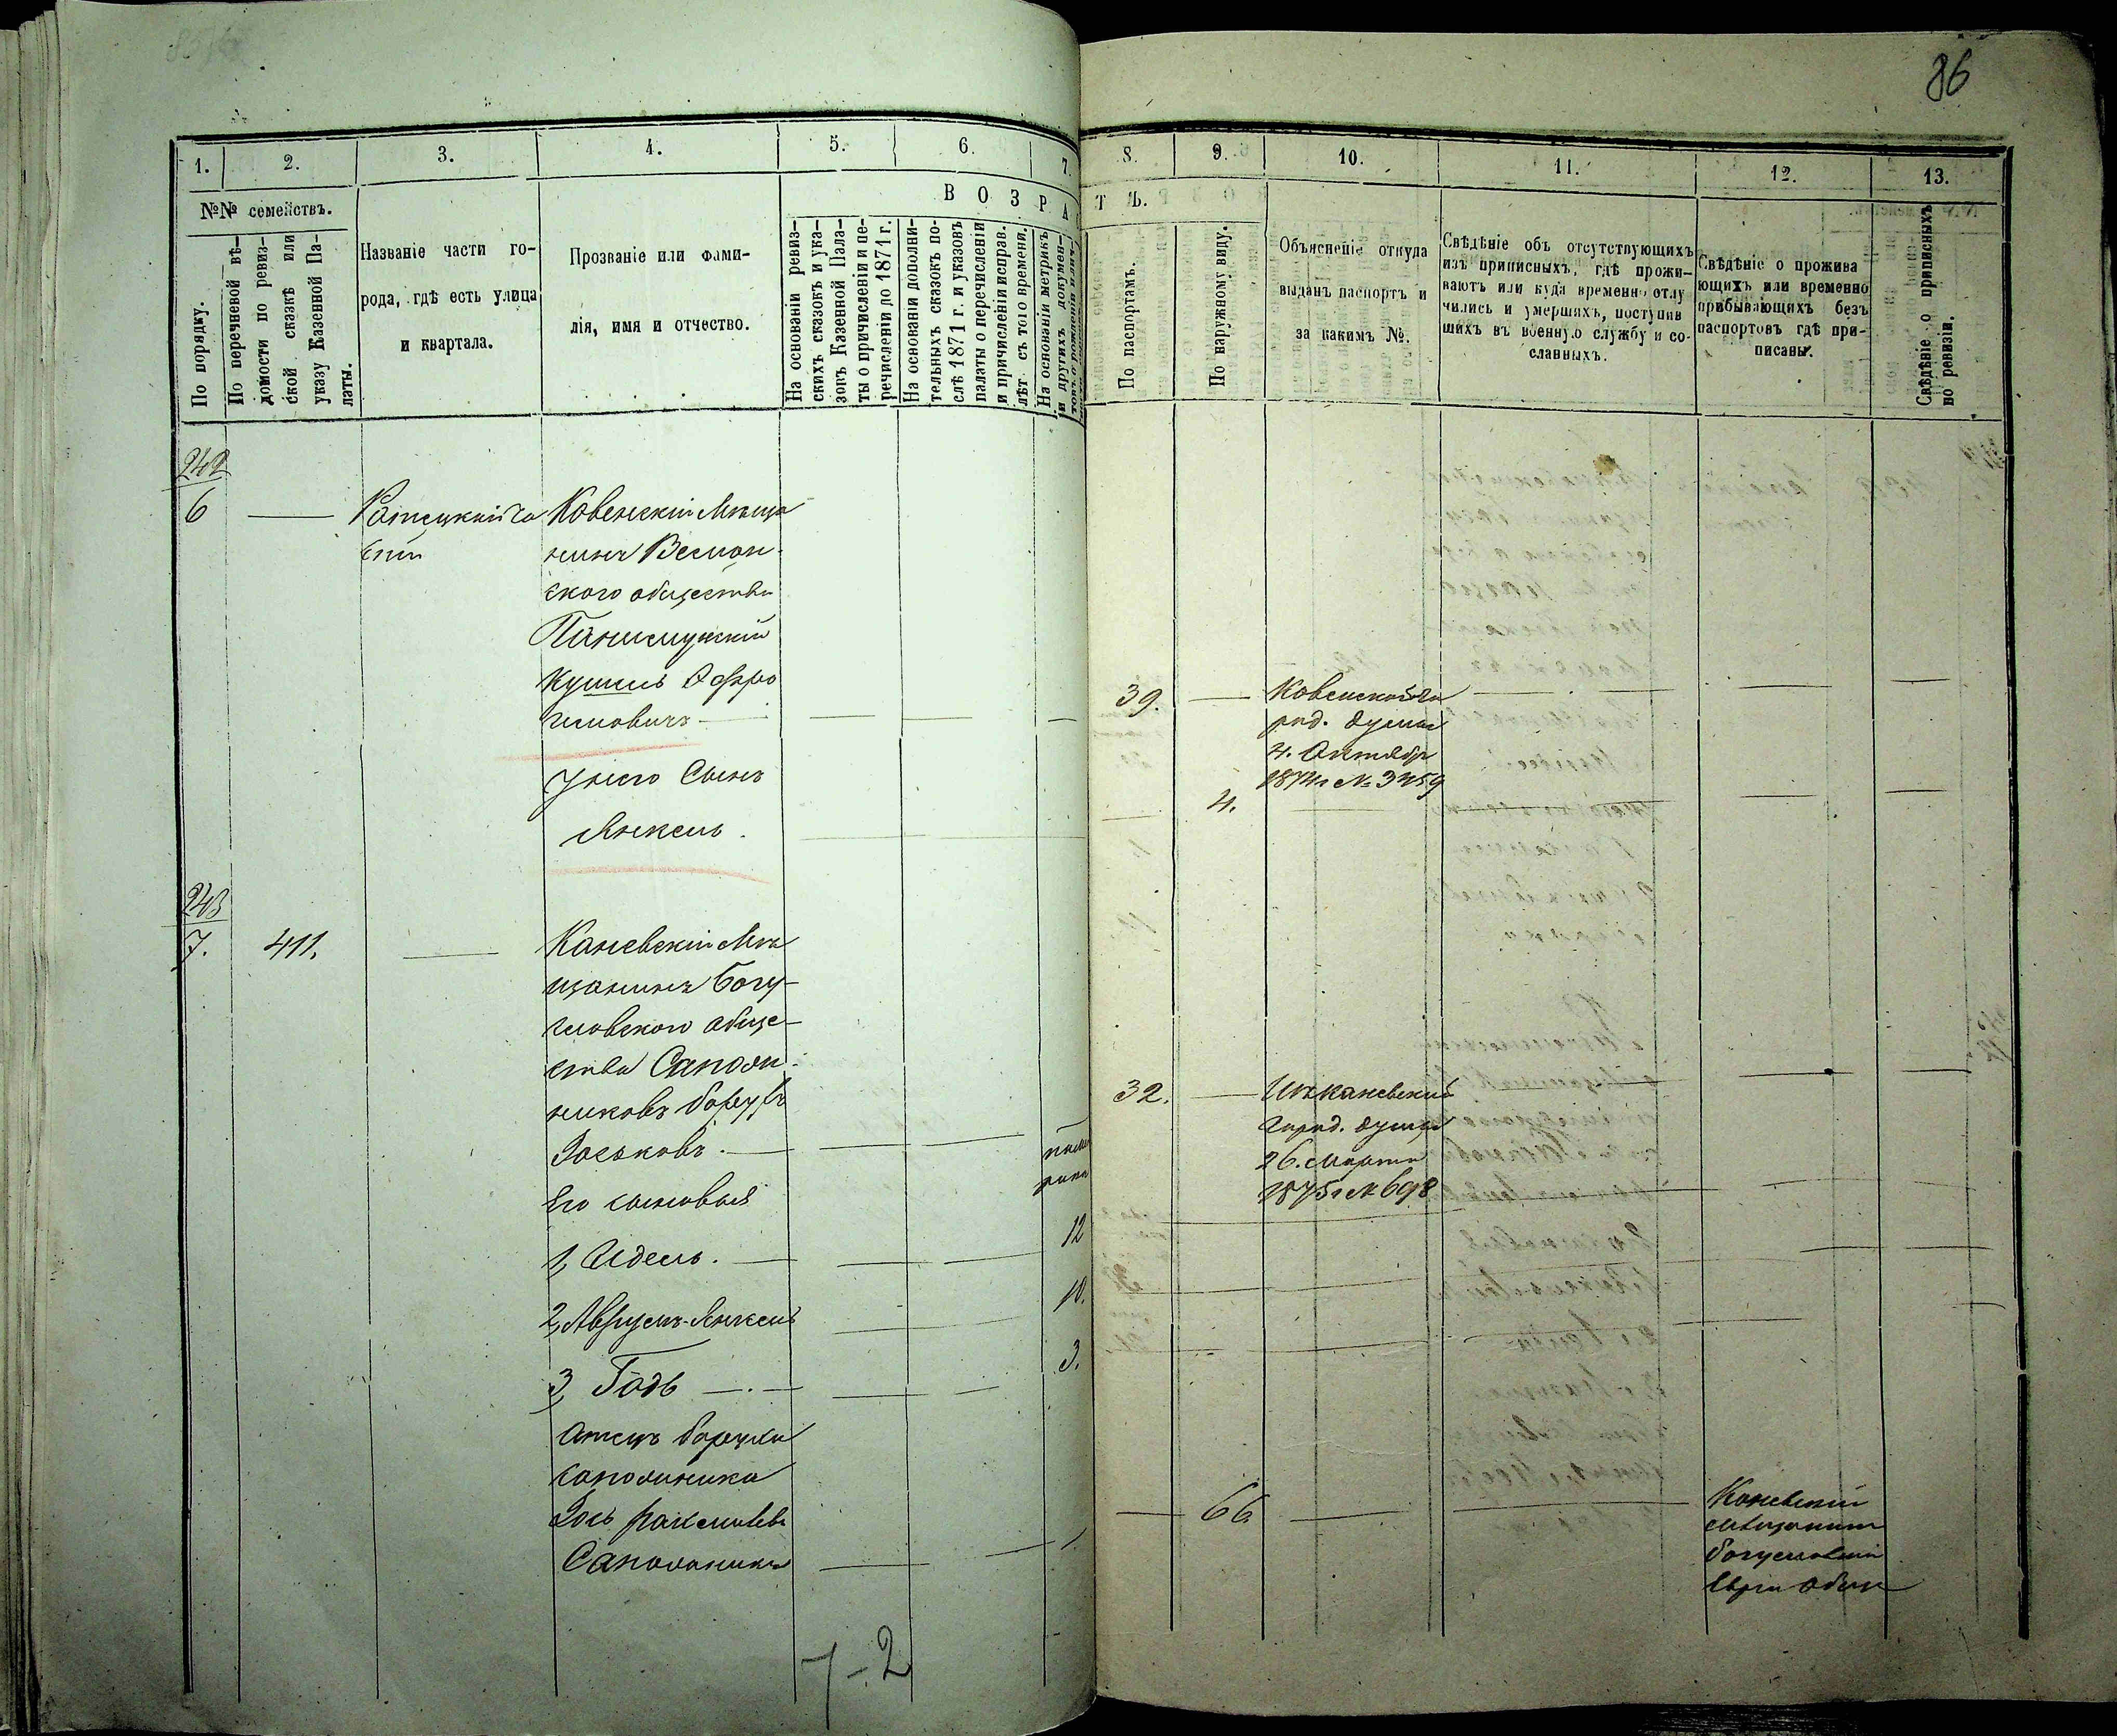 86
1.
2.
3.
4.
5.
6.
7.
8.
9.
10.
11.
12.
13.
№№ семействъ.
По порядку.
По перечневой вѣ-
домости по ревиз-
ской сказкѣ или
указу Казенной Па-
латы.
Названіе части го-
рода, гдѣ есть улица
и квартала.
Прозваніе или фами-
лія, имя и отчество.
В О З Р А
Т Ѣ.
На основаніи ревиз-
скихъ сказокъ и ука-
зовъ Казенной Пала-
ты о причисленіи и пе-
речисленіи до 1871 г.
На основаніи дополни-
тельныхъ сказокъ по-
слѣ 1871 г. и указовъ
палаты о перечисленіи
и причисленіи исправ.
лѣт съ того времени.
На основаніи метрикъ
и другихъ докумен-
По паспортамъ.
По наружному виду.
Объясненіе откуда
выданъ паспортъ и
за какимъ №.
Свѣдѣніе объ отсутствующихъ
изъ приписныхъ, гдѣ прожи-
ваютъ или куда временно отлу
чились и умершихъ, поступив
шихъ въ военную службу и со-
сланныхъ.
Свѣдѣніе о прожива
ющихъ или временно
прибывающихъ безъ
паспортовъ гдѣ при-
писаны.
Свѣдѣніе о приписныхъ
по ревизіи.
242
6
Ковенскій Мѣща
нинъ
ского общества
Кушель
39.
Ковенской го
род. думы
4. Октября
1874 г № 3459
у него Сынъ
Янкель.
4.
243
7.
411.
Каневскій Мѣ
щанинъ Богу-
славского обще-
ства Сапож-
никовъ Борухъ
Іоськовъ.
32.
Изъ Каневской
город. думы
26. Марта
1875 г № 698
Его сыновья
1, Идель.
12
2, Аврумъ-Янкель
10.
3, Годь
3.
Отецъ Боруха
Сапожника
Сапожникъ
66
Каневскій
мѣщанинъ
Богуславскій
Евр. Общ.
7-2